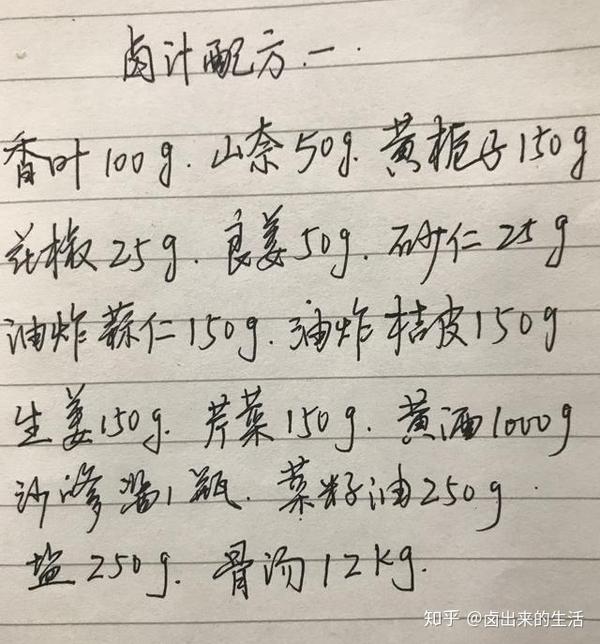 卤汁配方.一.
香叶100g.山奈50g.黄栀子150g
花椒25g.良姜50g.砂仁25g
油炸蒜仁150g.油炸桔皮150g
生姜150g.芹菜150g.黄酒1000g
沙嗲酱1瓶.菜籽油250g.
盐250g.骨汤12kg.
知乎 @卤出来的生活